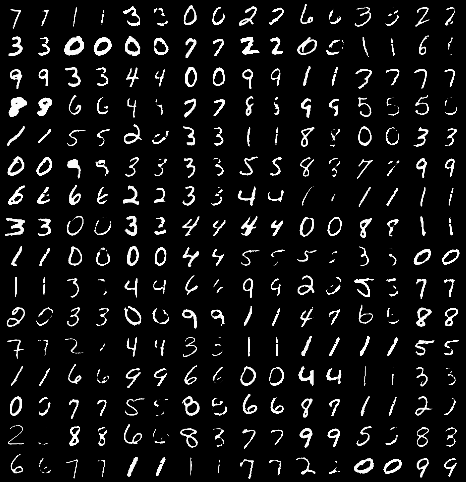 7 7 1 1 3 3 0 0 2 7 6 6 3 3 2 2
3 3 0 0 0 0 7 7 2 2 0 0 1 1 6 6
9 9 3 3 4 4 0 0 9 9 1 1 3 7 7 7
8 8 6 6 4 7 7 8 8 9 9 5 5 5 5
1 1 5 5 2 3 3 1 1 8 8 0 0 3 3
0 0 9 9 3 3 3 3 5 5 8 3 7 7 9 9
6 6 6 6 2 2 3 3 4 4 1 1 1 1 1 1
3 3 0 0 3 3 4 4 4 4 0 0 8 8 1 1
1 1 0 0 0 0 4 4 5 5 5 5 3 3 0 0
1 1 3 3 4 4 6 9 9 2 5 5 7 7
2 0 3 3 0 0 9 9 1 1 4 7 6 6 8 8
7 7 2 4 4 3 3 1 1 1 1 1 1 5 5
1 1 6 6 9 9 6 6 0 0 4 4 1 1 3 3
0 0 7 7 5 5 8 8 6 6 8 7 1 1 2
2 8 8 6 6 8 3 7 7 9 9 5 5 8 3
6 6 7 7 1 1 1 1 7 7 2 2 0 0 9 9